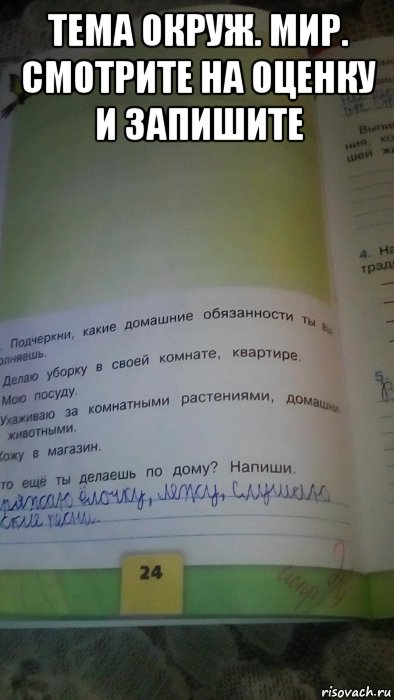 ТЕМА ОКРУЖ. МИР.
СМОТРИТЕ НА ОЦЕНКУ
И ЗАПИШИТЕ
Подчеркни, какие домашние обязанности ты вы
олняешь.
Делаю уборку в своей комнате, квартире.
Мою посуду.
Ухаживаю за комнатными растениями, домашни-
животными.
Хожу в магазин.
то ещё ты делаешь по дому? Напиши.
ёлочку, лежу, слушаю
песни.
24
Выпи
ния, ко
шей ж
4. На
трад
5.
risovach.ru